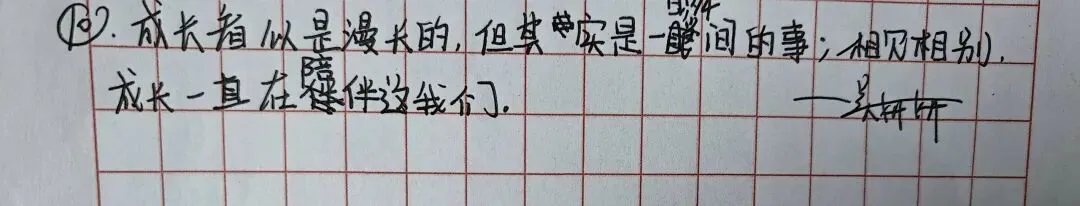 ⑩. 成长看似是漫长的, 但其实是一瞬间的事; 相见相别,
成长一直在陪伴这我们.
——吴妍妍